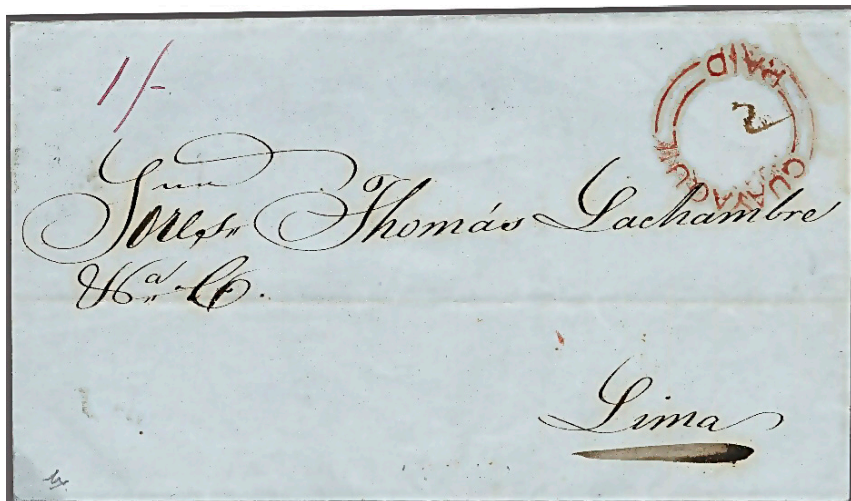 1/-
PAID
2
GUAYAQUIL
Sores. Thomás Lachambre
& Ca.
Lima